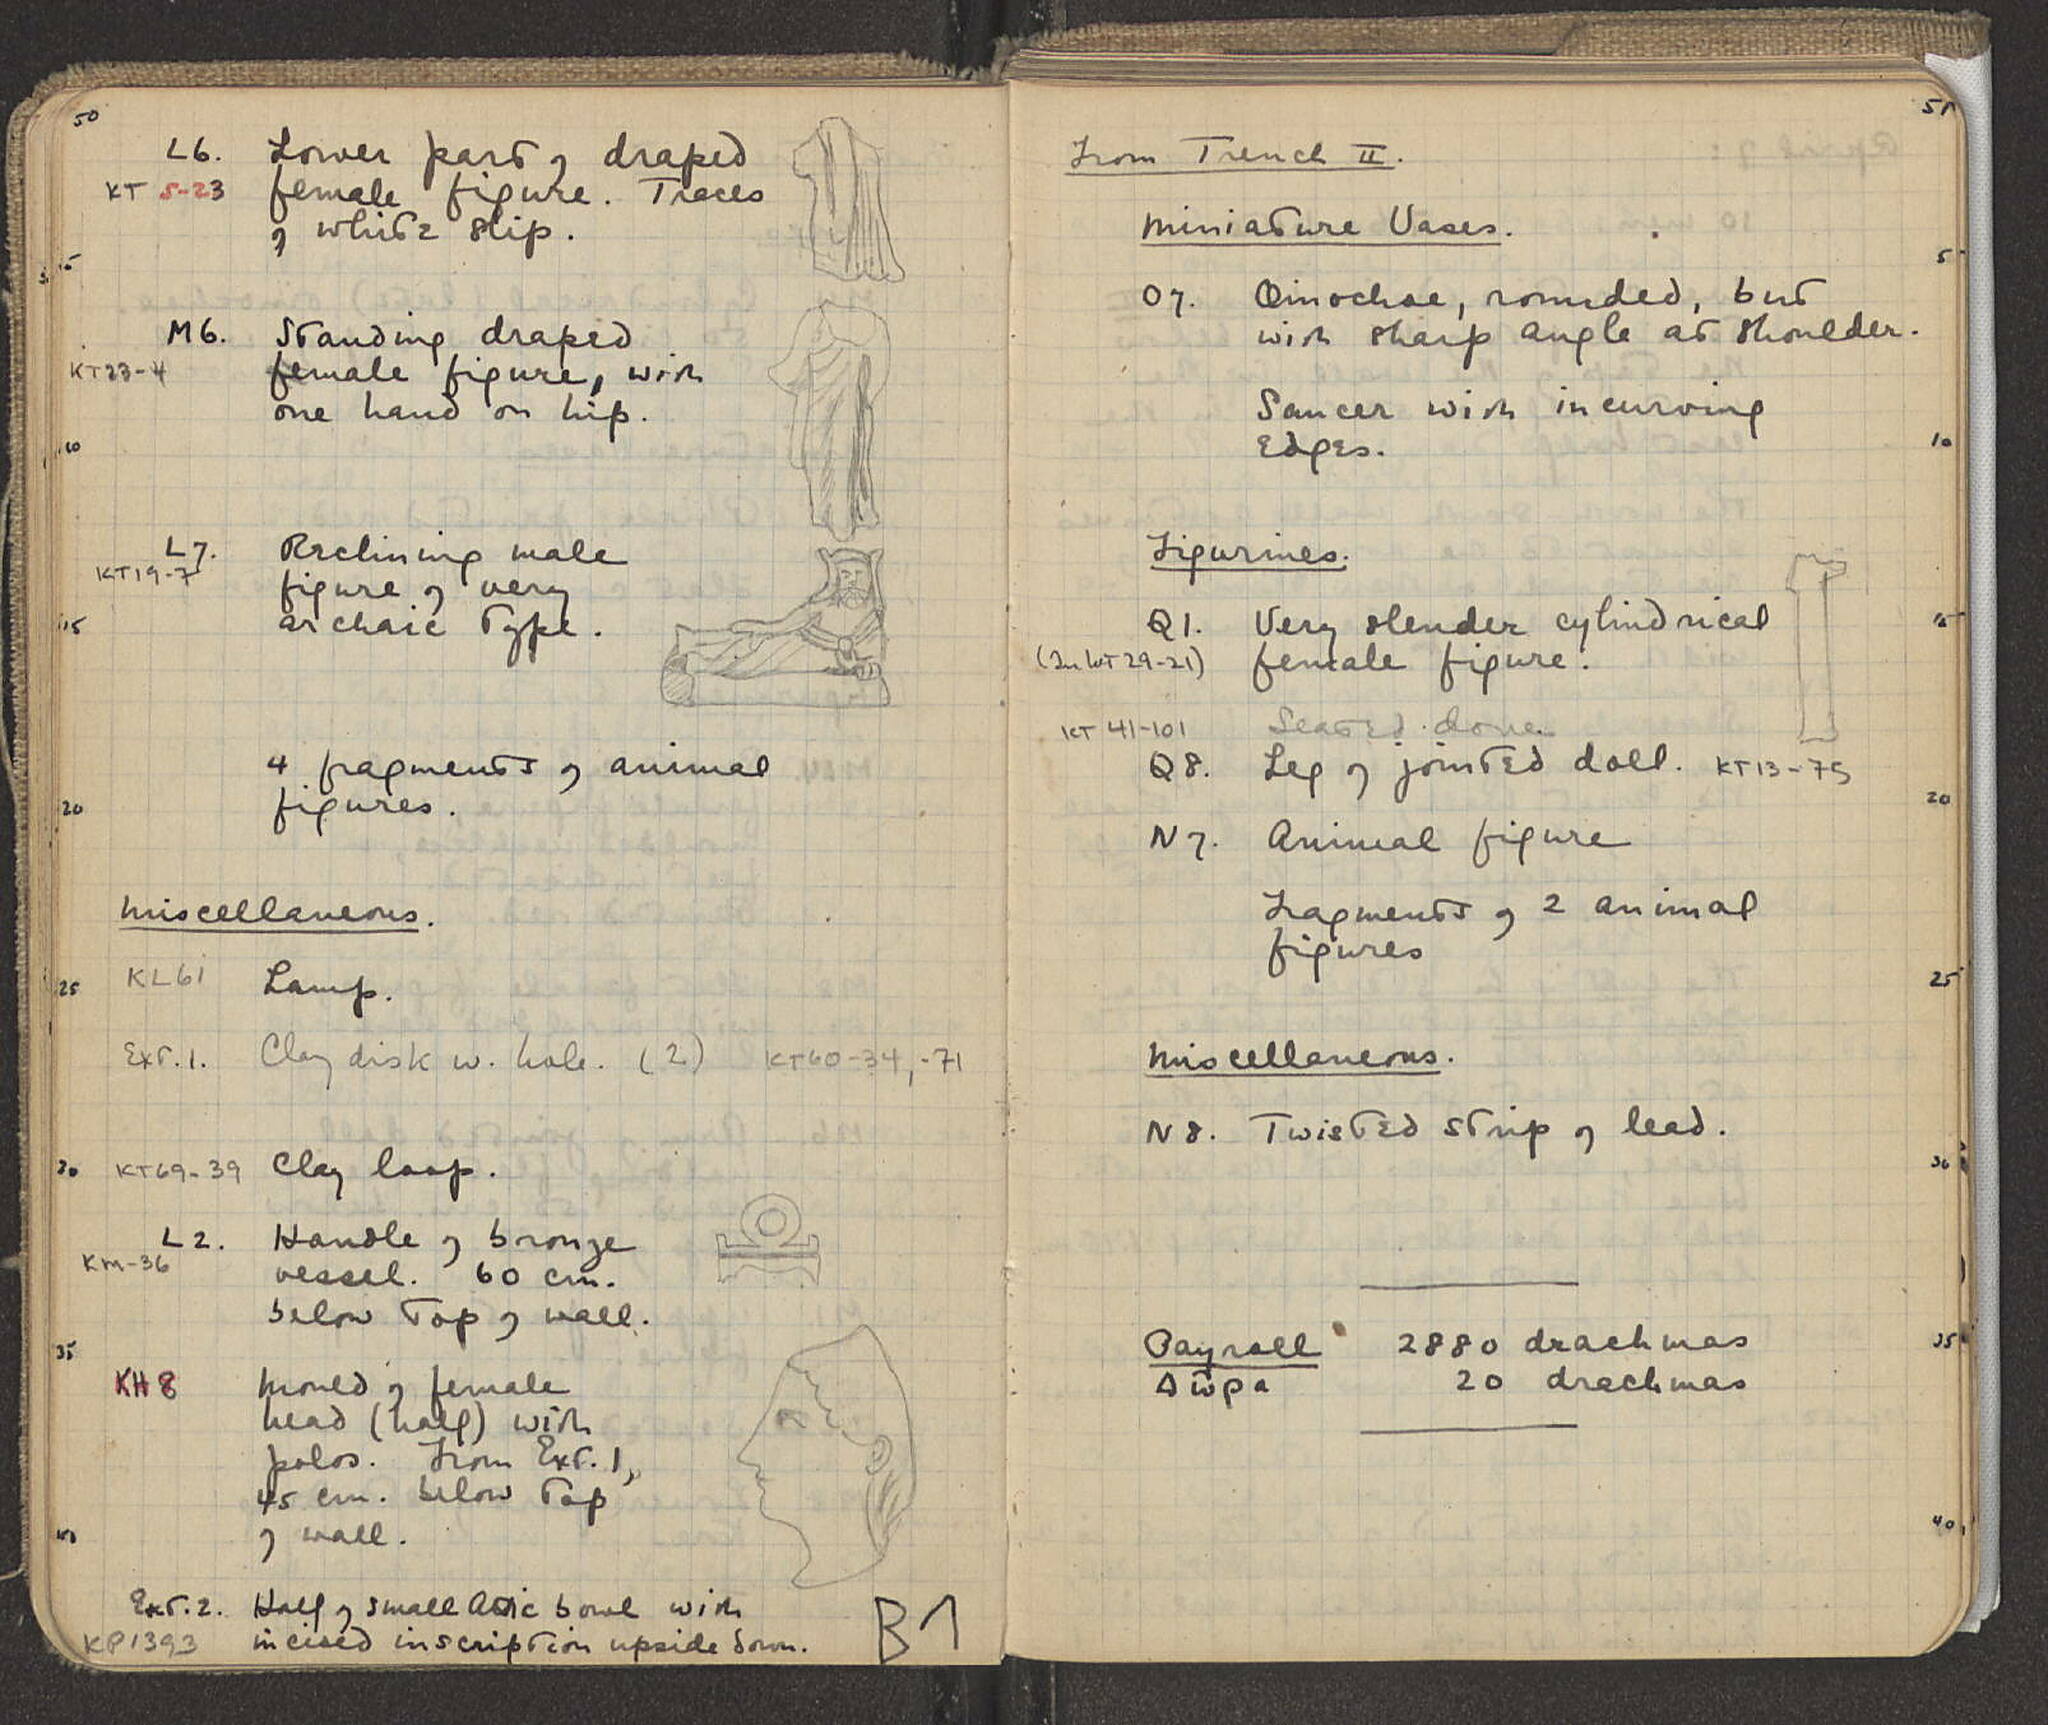 50
L6. Lower part of draped
KT 5-23 female figure. Traces
of white slip.
5
M6. Standing draped
KT23-4 female figure, with
one hand on hip.
10
L7. Reclining male
KT19-7 figure of very
15 archaic type.
4 fragments of animal
20 figures.
Miscellaneous.
25 KL61 Lamp.
Ext.1. Clay disk w. hole. (2) KT60-34,-71
30 KT69-39 Clay loop.
L2. Handle of bronze
KM-36 vessel. 60 cm.
below top of wall.
35
KH8 Mould of female
head (half) with
polos. From Ext.1,
45 cm. below top
40 of wall.
Ext.2. Half of small Attic bowl with
KP1393 incised inscription upside down.
51
From Trench II.
Miniature Vases.
5
O7. Oinochoe, rounded, but
with sharp angle at shoulder.
Saucer with incurving
10 edges.
Figurines.
Q1. Very slender cylindrical 15
(In KT29-21) female figure.
KT 41-101 Seated. done.
Q8. Leg of jointed doll. KT13-75
20
N7. Animal figure
Fragments of 2 animal
figures
25
Miscellaneous.
N8. Twisted strip of lead.
30
Payroll 2880 drachmas 35
Δῶρα 20 drachmas
40